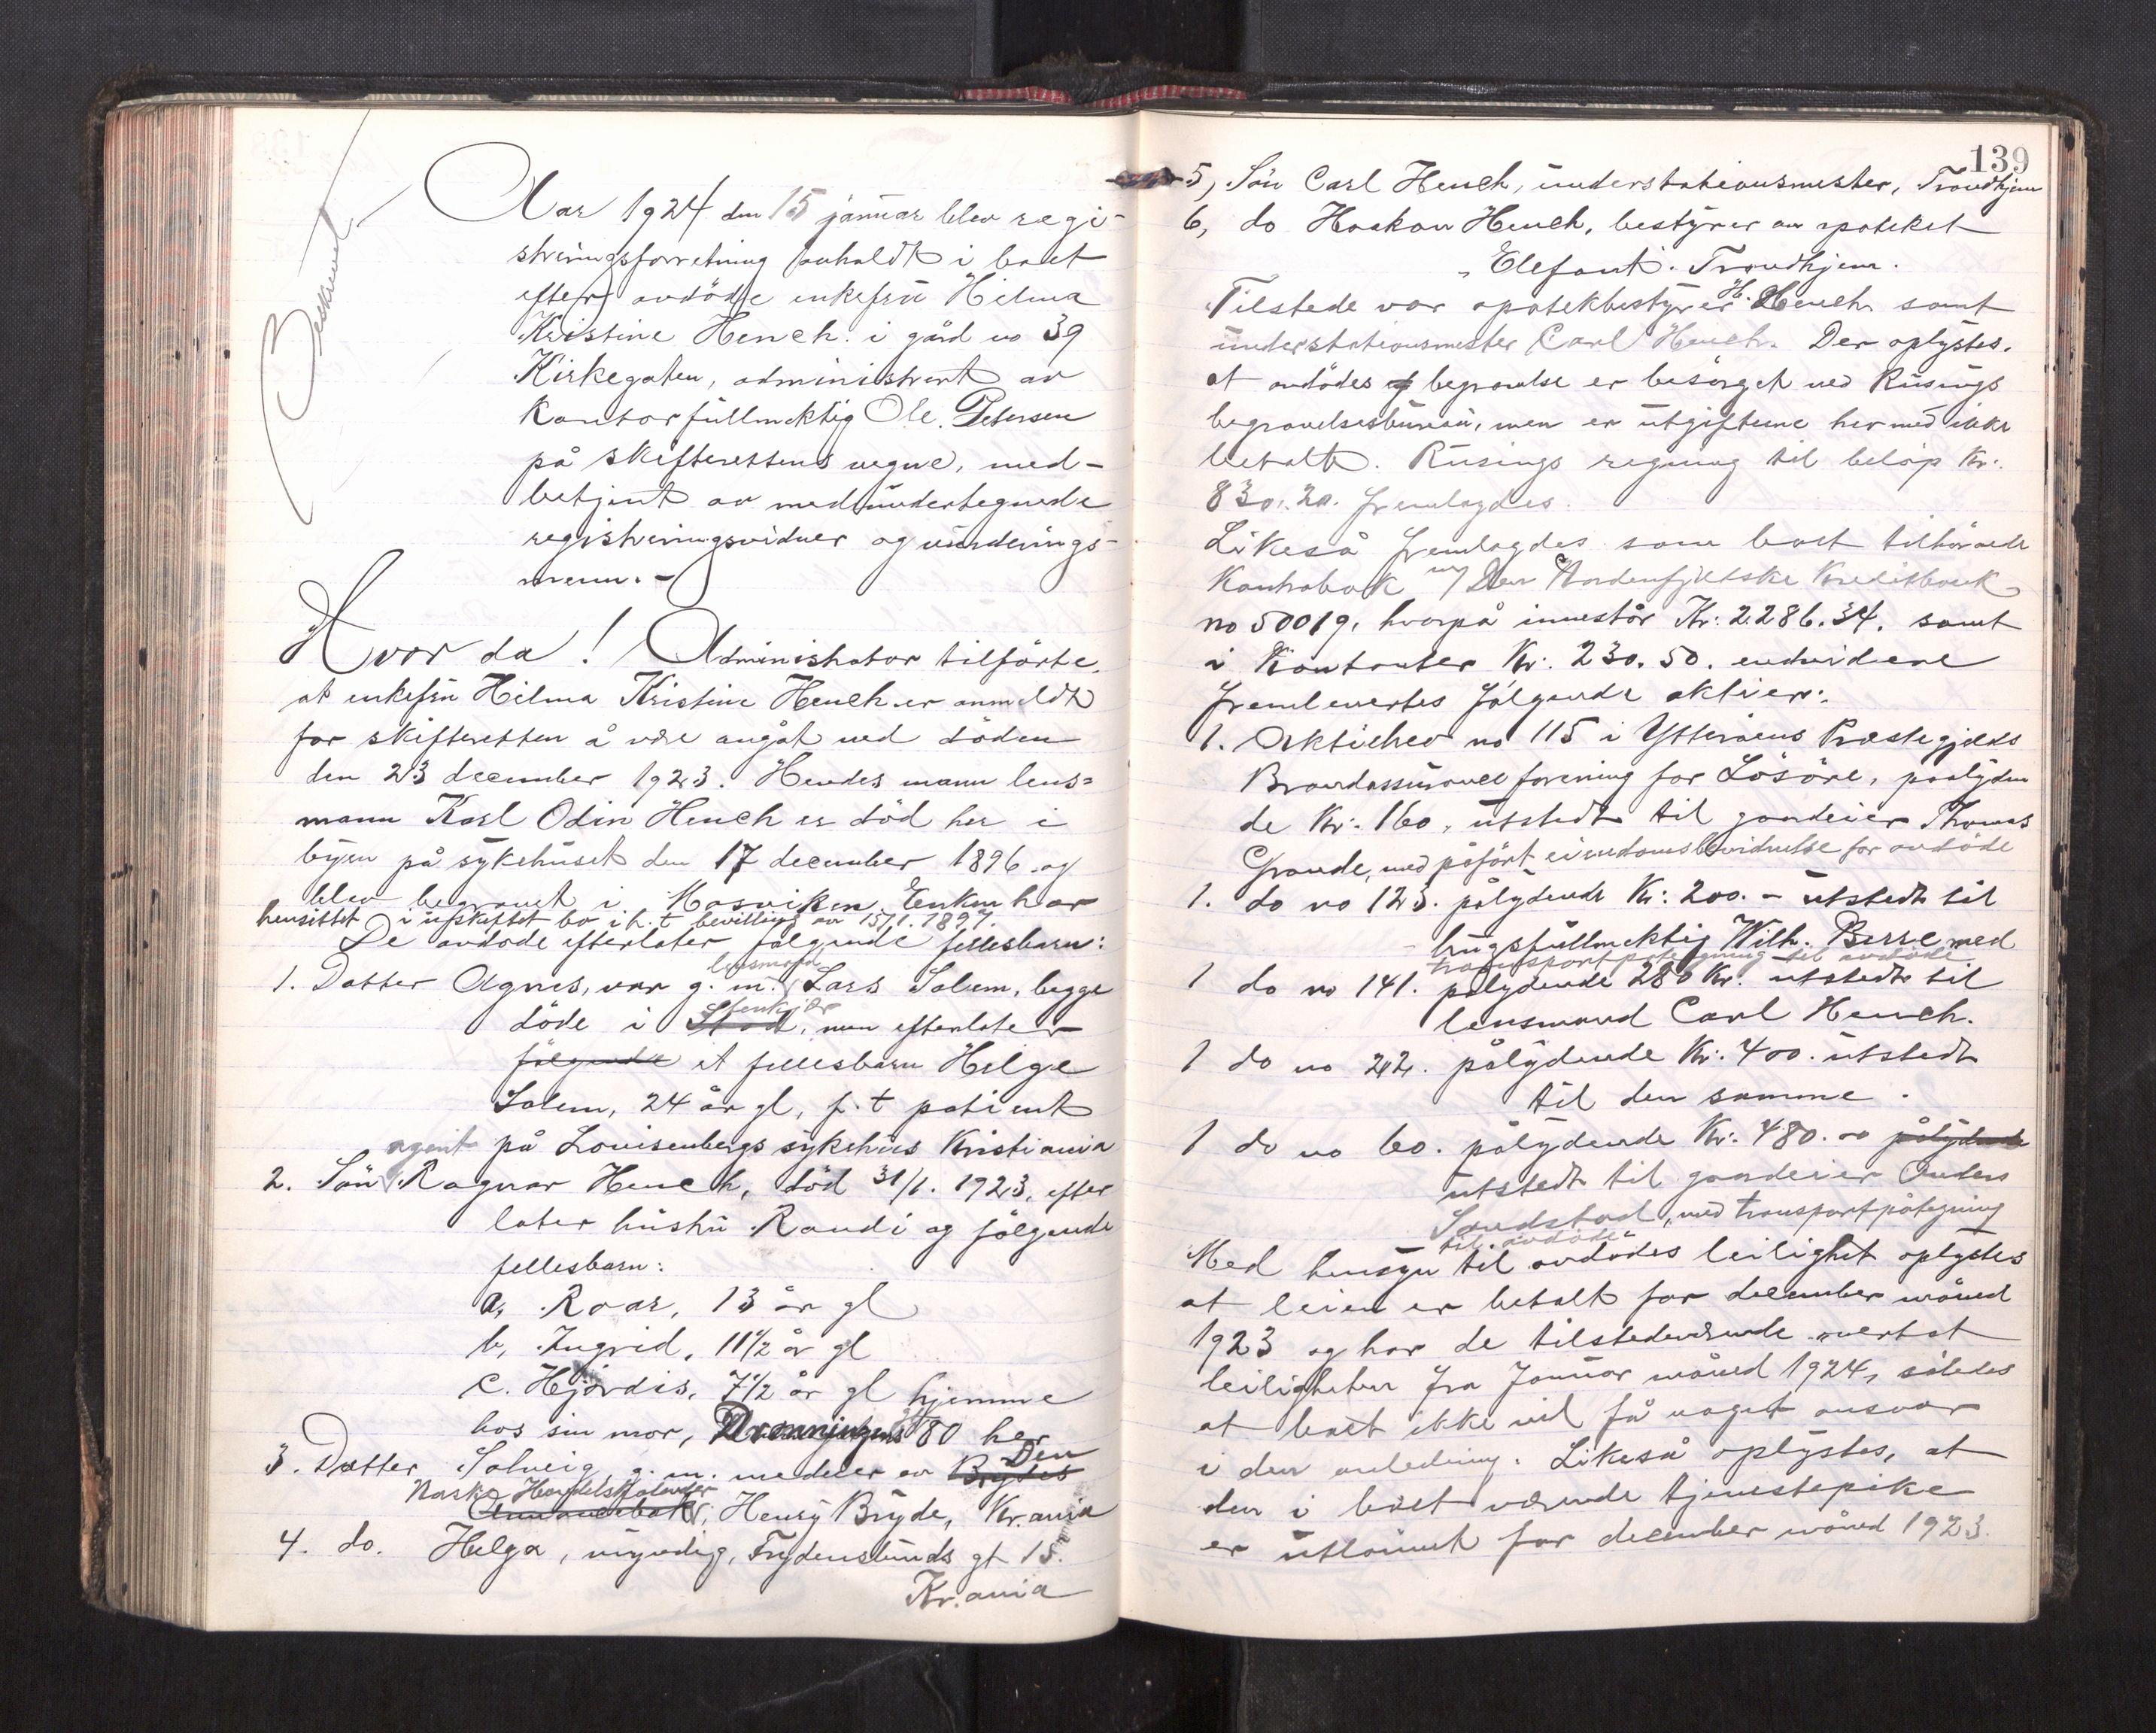 Beskrevet
Aar 1924 den 15 januar blev regi-
streringsforretning avholdt i boet
efter avdöde enkefru Hilma
Kristine Hench i gård no 39
Kirkegaten, administrert av
kontorfullmektig Ole Petersen
på skifterettens vegne, med-
betjent av medundertegnede
registreringsvidner og vurderings-
menn.-
Hvor da! Administrator tilförte,
at enkefru Hilma Kristine Hench er anmeldt
for skifteretten å være avgåt ved döden
den 23 december 1923. Hendes mann lens=
mann Karl Odin Hench er död her i
byen på sykehuset den 17 december 1896 og
blev begravet i Mosviken. Enken har
hensittet i uskiftet bo i h.t bevilling av 15/1. 1897.
De avdöde efterlater fölgende fellesbarn:
1. Datter Agnes, var g. m. lensmann Lars Solem, begge
döde i Stod Stenkjær, men efterlater
fölgende et fellesbarn Helge
Solem, 24 år gl, p.t patient
på Lovisenbergs sykehus Kristiania
2. Sön agent Ragnar Hench, död 31/1. 1923, efter
later hustru Randi og fölgende
fellesbarn:
a, Roar, 13 år gl
b, Ingrid, 11 1/2 år gl
c. Hjördis, 7 1/2 år gl hjemme
hos sin mor, Dronningens gt 80 her
3. Datter Solveig, g. m. medeier av Brydes Den
Norske Handelskalender
Annoncebok, Henry Bryde, Kr.ania
4. do. Helga, myndig, Frydenlunds gt 15.
Kr.ania
139
5, Sön Carl Hench, understationsmester, Trondhjem
6, do Haakon Hench, bestyrer av apoteket
"Elefant". Trondhjem.
Tilstede var apotekbestyrer H. Hench samt
understationsmester Carl Hench. Der oplystes,
at avdödes begravelse er besörget ved Rusings
begravelsesbureau, men er utgifterne hermed ikke
betalt. Rusings regning til belöp Kr:
830.20. fremlagdes.
Likeså fremlagdes som boet tilhörende
Kontrabok m/ Den Nordenfjeldske Kreditbank
no 50019, hvorpå innestår Kr: 2.286.34. samt
i Kontanter Kr: 230.50. endvidere
fremlevertes fölgende aktier:
1. Aktiebrev no 115 i Ytteröens Præstegjelds
Brandassuranceforening for Lösöre, paalyden
de Kr: 160, utstedt til gaardeier Thomas
Grande, med påfört eiendomsbevidnelse for avdöde
1. do no 123. pålydende Kr: 200.- utstedt til
brugsfullmektig Wilh. Berre med
transportpåtegning til avdöde
1 do no 141. pålydende 280 Kr. utstedt til
lensmand Carl Hench.
1 do no 242. pålydende Kr: 400. utstedt
til den samme.
1 do no 60. pålydende Kr: 480.00 pålydende
utstedt til gaardeier Anders
Sandstad, med transportpåtegning
til avdöde
Med hensyn til avdödes leilighet oplystes
at leien er betalt for december måned
1923 og har de tilstedeværende overtat
leiligheten fra Januar måned 1924, således
at boet ikke vil få noget ansvar
i den anledning. Likeså oplystes, at
den i boet værende tjenestepike
er utlönnet for december måned 1923.